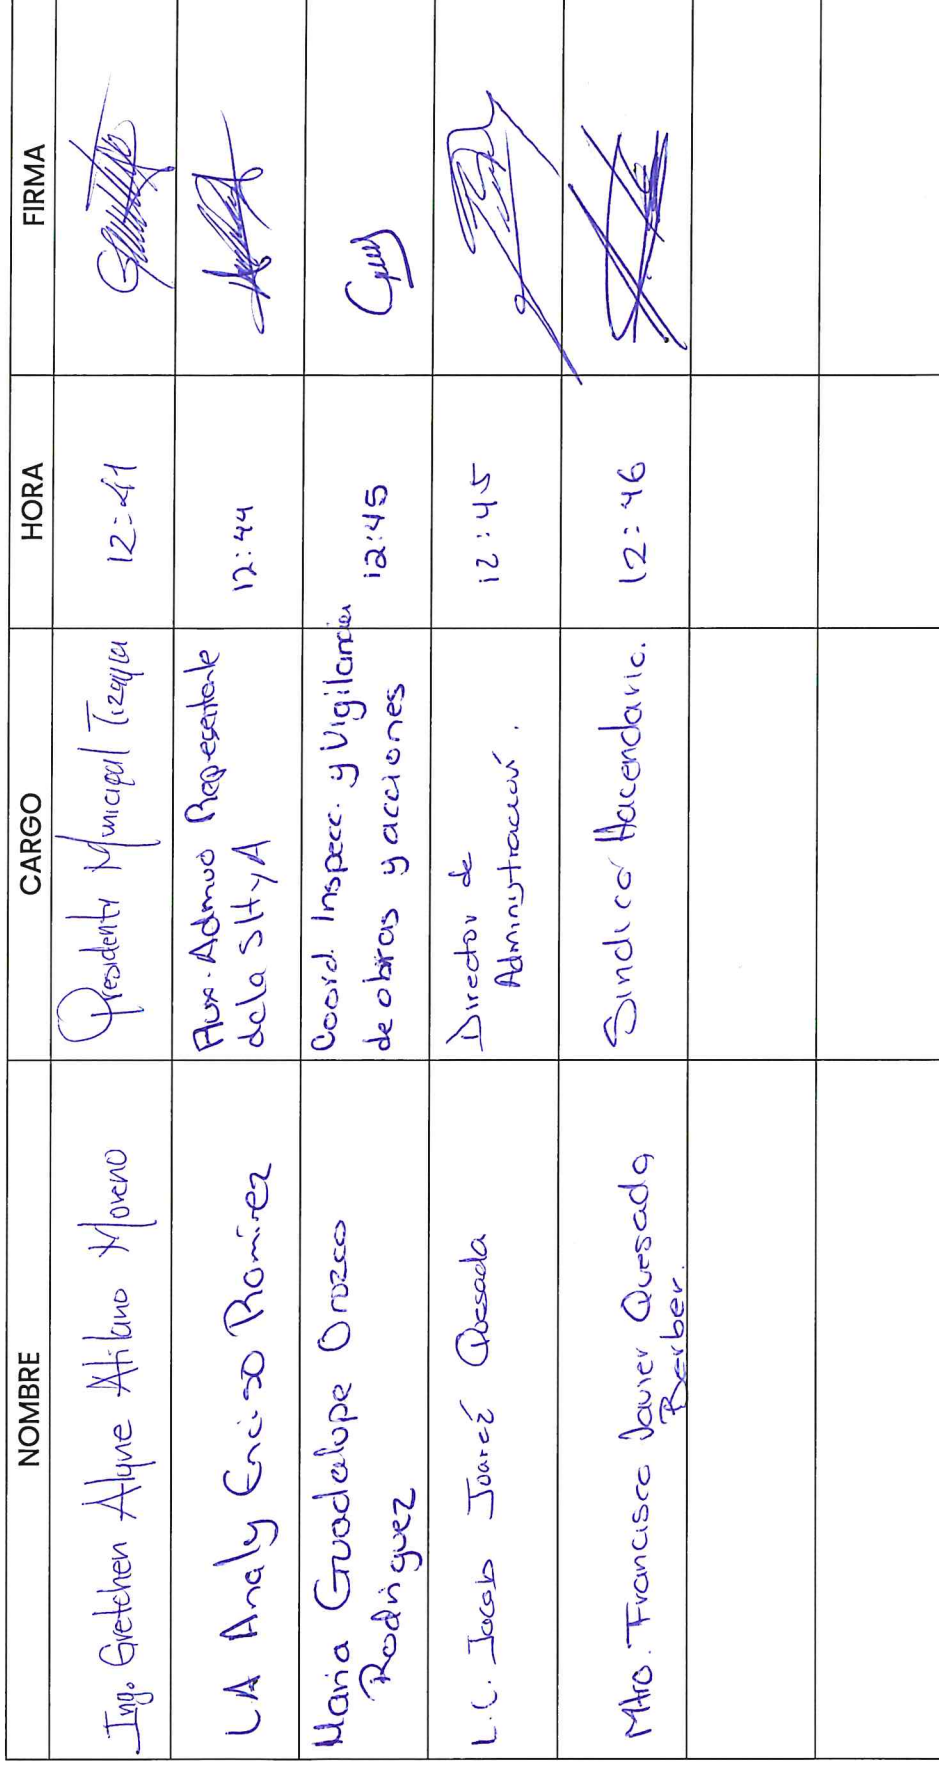 NOMBRE CARGO HORA FIRMA
Ing. Gretchen Alyne Atilano Moreno Presidenta Municipal Tizayuca 12:41
LA Analy Enciso Ramirez Aux. Admvo Representante 12:44
de la SHyA
Maria Guadalupe Orozco Coord. Inspecc. y Vigilancia 12:45
Rodriguez de obras y acciones
L.C. Jacob Juarez Quesada Director de 12:45
Administración.
Mtro. Francisco Javier Quesada Sindico Hacendario. 12:46
Berber.